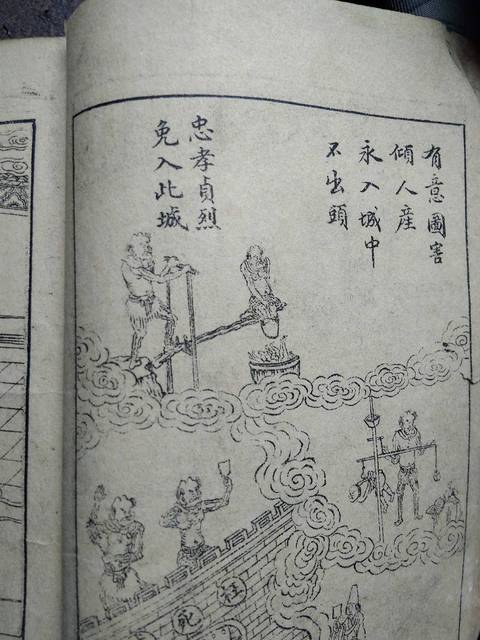 有意圖害
傾人産
永入城中
不出頭
忠孝貞烈
免入此城
枉
死